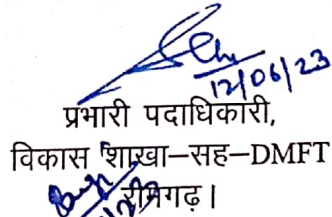 12/06/23
प्रभारी पदाधिकारी,
विकास शाखा–सह–DMFT
रामगढ़।